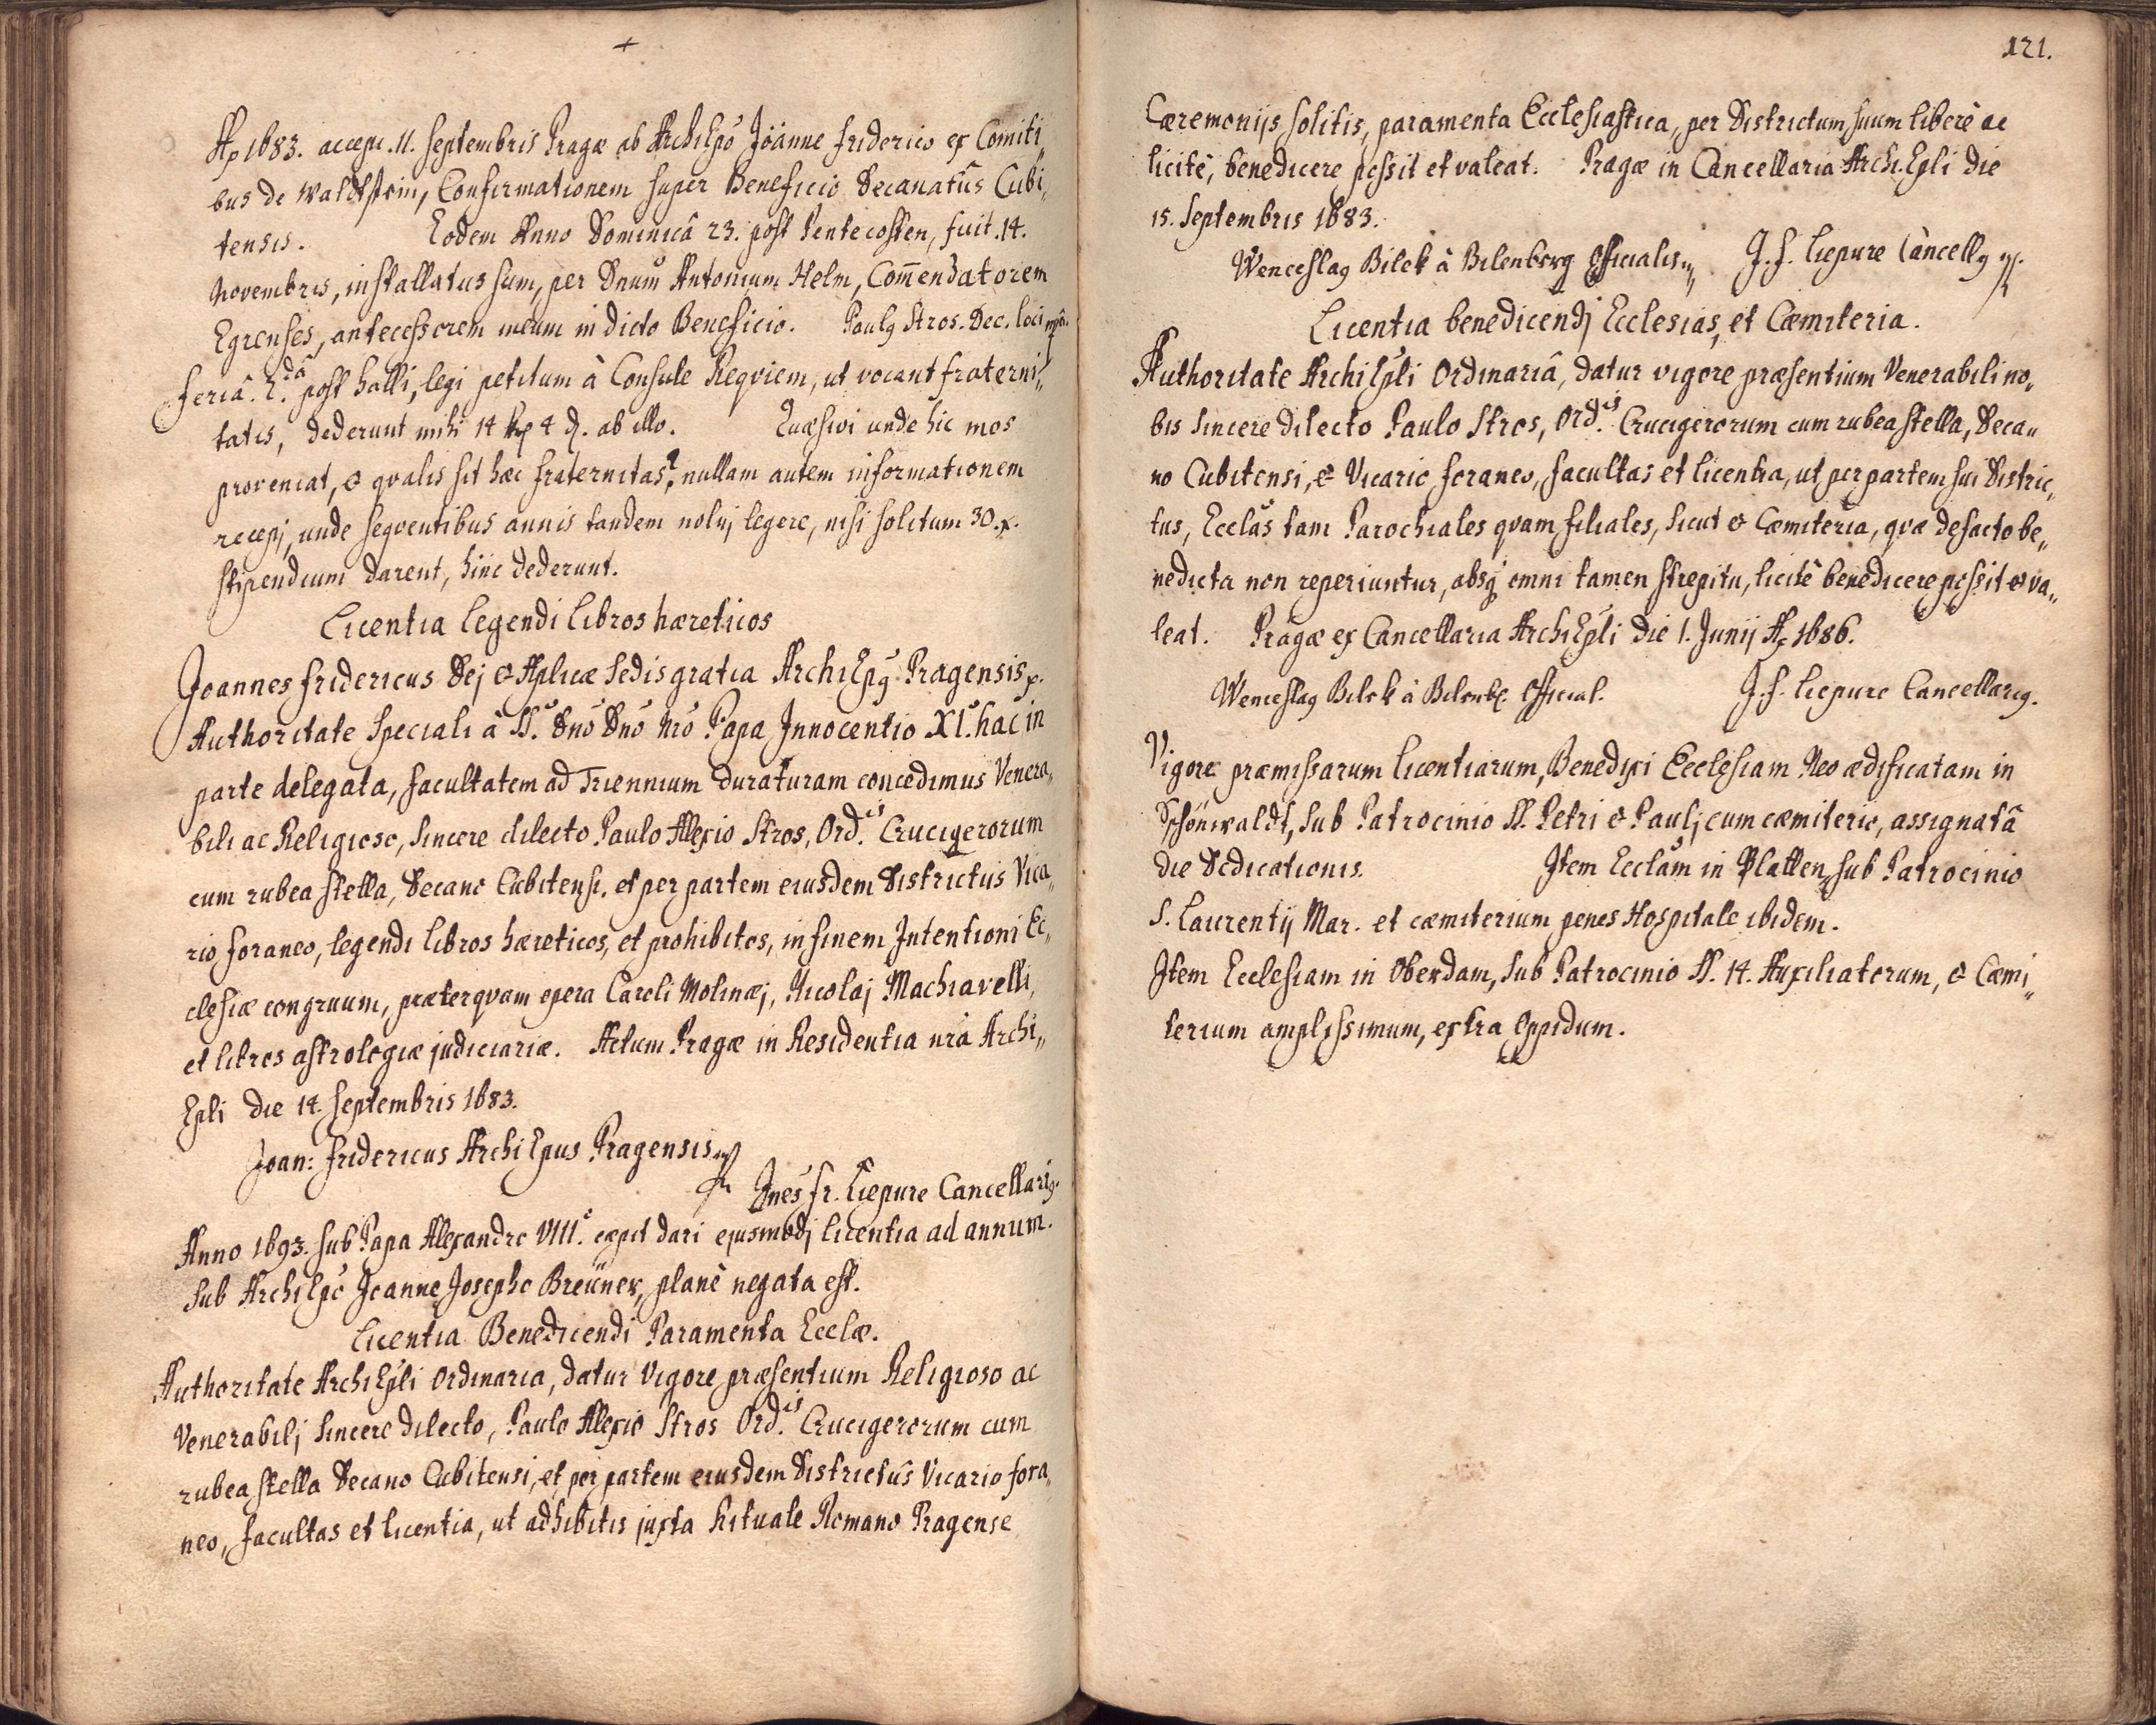 121.
Ao 1683. accepi .11. Septembris Pragæ ab Archiepo Joanne friderico ex Comiti„
bus de Waldtstein, Confirmationem super Beneficio Decanatûs Cubi„
tensis. Eodem Anno Dominicâ 23. post Pentecosten, fuit .14.
Novembris, installatus sum, per Dnum Antonium Helm, Com̄endatorem
Egrenses, antecessorem meum in dicto Beneficio. Paulg Stros. Dec. loci mp.
feriâ. 2.dâ post Galli, legi petitum à Consule Reqviem, ut vocant fraterni„
tatis, dederunt mihi 14 4 ab illo. Quæsivi unde hic mos
proveniat, & qvalis sit hæc fraternitas? nullam autem informationem
recepj, unde seqventibus annis tandem noluj legere, nisi solitum 30. x.
stipendium darent, hinc dederunt.
Licentia Legendi Libros hæreticos
Joannes fridericus Dej & Aplicæ Sedis gratia ArchiEpg Pragensis p.
Authoritate Speciali à SS. Dno Dno Nro Papa Innocentio XI.o hac in
parte delegata, facultatem ad Triennium duraturam concedimus Venera„
bili ac Religioso, Sincere dilecto Paulo Alexio Stros, Ord.is Crucigerorum
cum rubea stella, Decano Cubitensi, et per partem eiusdem Districtûs Vica„
rio foraneo, legendi libros hæreticos, et prohibitos, in finem Intentioni Ec„
clesiæ congruum, præterqvam opera Caroli Molinæj, Nicolaj Machiavelli,
et libros astrologiæ judiciariæ. Actum Pragæ in Residentia nra Archi„
Epli die 14. Septembris 1683.
Joan: fridericus ArchiEpus Pragensis mp
Jnes fr. Liepure Cancellarig.
Anno 1693. sub Papa Alexandro VIII.o cæpit dari ejusmodj licentia ad annum.
Sub ArchiEpo Joanne Josepho Breüner, planè negata est.
Licentia Benedicendi Paramenta Ecclæ.
Authoritate ArchiEpli Ordinaria, datur Vigore præsentium Religioso ac
Venerabilj Sincere dilecto, Paulo Alexio Stros Ord.is Crucigerorum cum
rubea stella Decano Cubitensi, et per partem eiusdem Districtûs Vicario fora„
neo, facultas et licentia, ut adhibitis juxta Rituale Romano Pragense
Cæremonijs solitis, paramenta Ecclesiastica, per Districtum suum liberè ac
licitè, benedicere possit et valeat. Pragæ in Cancellaria ArchiEpli die
15. Septembris 1683.
Wenceslag Bilek à Bilenberg Officialis mp J. f. Liepure Cancellg mp.
Licentia benedicendj Ecclesias, et Cæmiteria.
Authoritate ArchiEpli Ordinariâ, datur vigore præsentium Venerabili no„
bis Sincere dilecto Paulo Stros, Ord.is Crucigerorum cum rubea stella, Deca„
no Cubitensi, & Vicario foraneo, facultas et licentia, ut per partem sui Distric„
tus, Ecclas tam Parochiales qvam filiales, sicut & Cæmiteria, qvæ defacto be„
nedicta non reperiuntur, absq omni tamen strepitu, licitè benedicere possit & va„
leat. Pragæ ex Cancellaria ArchiEpli die 1. Junij Ao 1686.
Wenceslag Bilek à Bilenbg. Official. J. f. Liepure Cancellarig.
Vigore præmissarum licentiarum, Benedixi Ecclesiam Neo ædificatam in
Schönwaldt, sub Patrocinio SS. Petri & Paulj cum cæmiterio, assignatâ
die Dedicationis. Item Ecclam in Platten, sub Patrocinio
S. Laurentij Mar. et cæmiterium penes Hospitale ibidem.
Item Ecclesiam in Oberdam, sub Patrocinio SS. 14. Auxiliatorum, & Cæmi„
terium amplissimum, extra Oppidum.